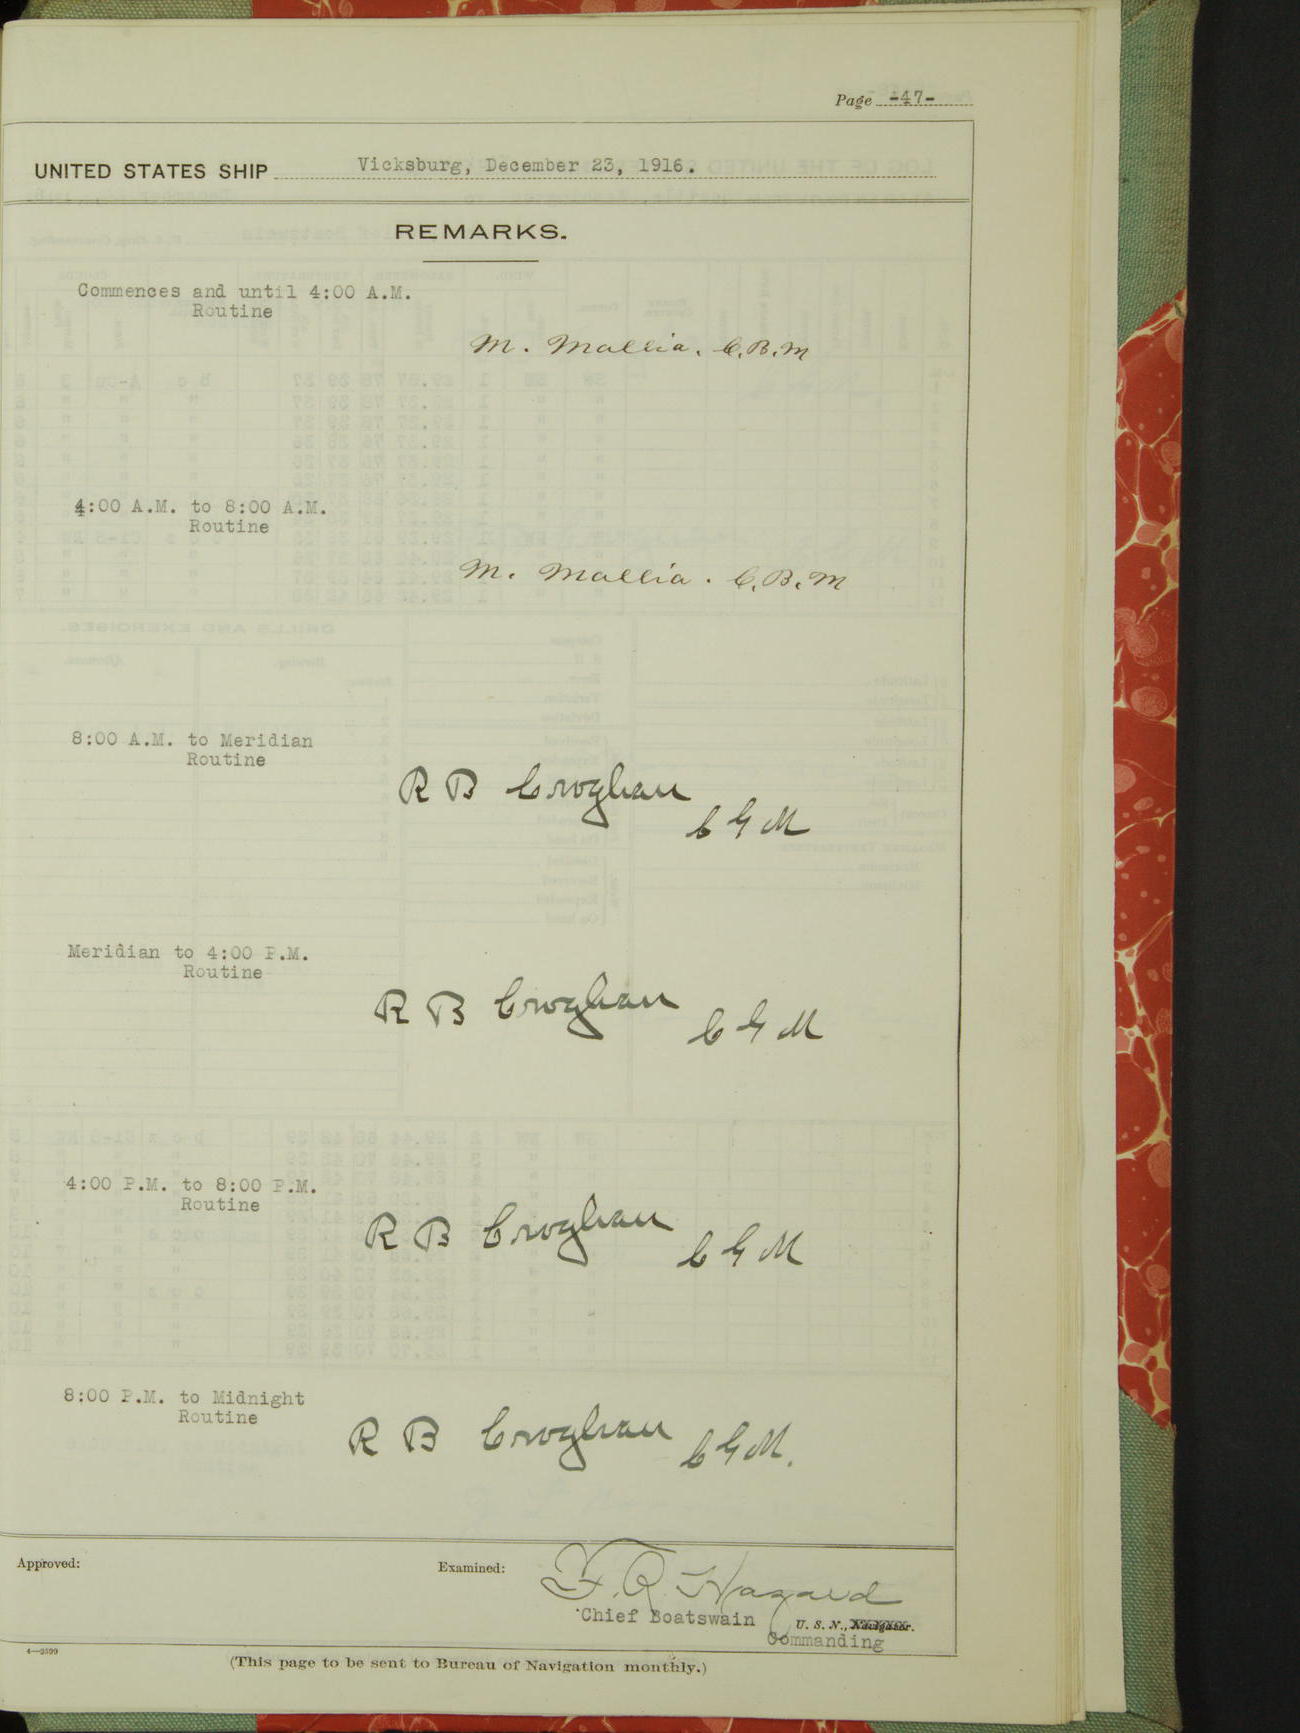 Page -47-
UNITED STATES SHIP Vicksburg, December 23, 1916.
REMARKS.
Commences and until 4:00 A.M.
Routine
M. Mallia. C.B.M
4:00 A.M. to 8:00 A.M.
Routine
M. Mallia. C.B.M
8:00 A.M. to Meridian
Routine
R B Croghan
C G M
Meridian to 4:00 P.M.
Routine
R B Croghan
C G M
4:00 P.M. to 8:00 P.M.
Routine
R B Croghan
C G M
8:00 P.M. to Midnight
Routine
R B Croghan
C G M.
Approved: Examined: F. R. Hazard
Chief Boatswain U. S. N., Navigator.
Commanding
4—3599
(This page to be sent to Bureau of Navigation monthly.)